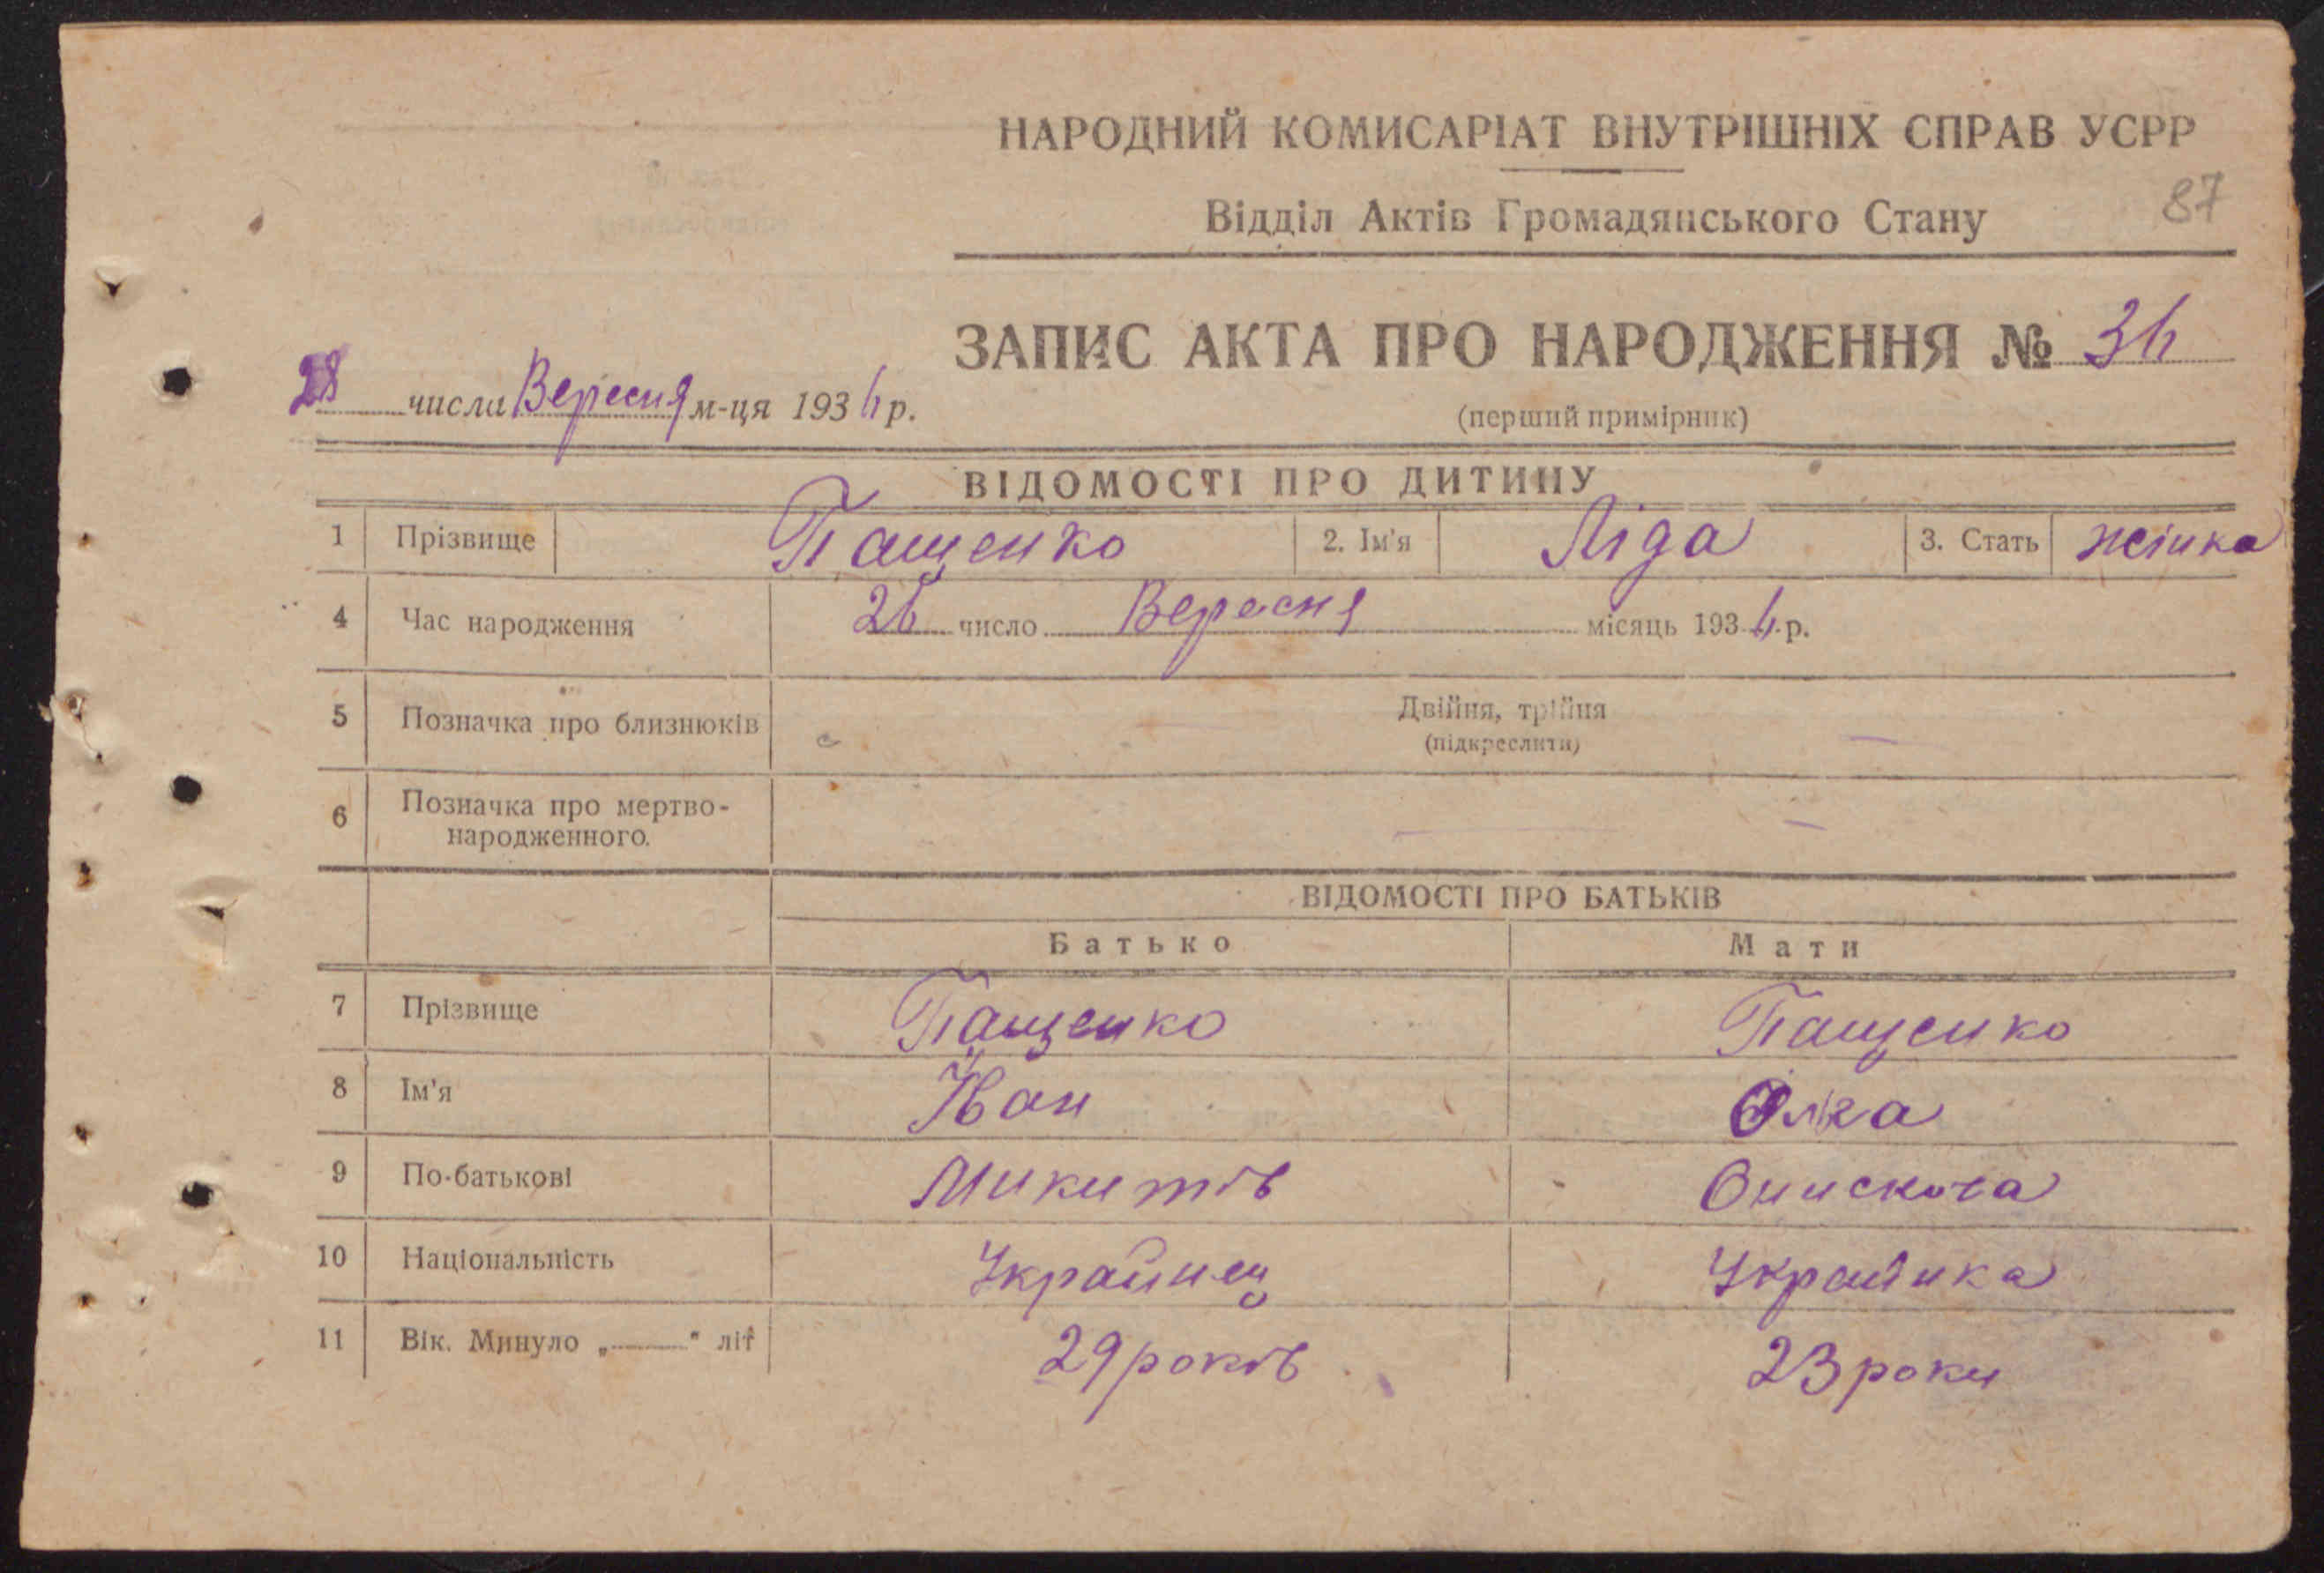 НАРОДНИЙ КОМИСАРІАТ ВНУТРІШНІХ СПРАВ УСРР
Відділ Актів Громадянського Стану
87
ЗАПИС АКТА ПРО НАРОДЖЕННЯ №
числа Вересня м-ця 193 р.
(перший примірник)
ВІДОМОСТІ ПРО ДИТИНУ
1 Прізвище Пащенко 2. Ім'я Ліда 3. Стать жінка
4 Час народження 26 число Вересня місяць 193 р.
5 Позначка про близнюків Двійня, трійня
(підкреслити) —
6 Позначка про мертво-
народженного. —
ВІДОМОСТІ ПРО БАТЬКІВ
Батько Мати
7 Прізвище Пащенко Пащенко
8 Ім'я Іван Олга
9 По-батькові Микитів
10 Національність Українец Українка
11 Вік. Минуло „ “ літ 29 років 23 роки